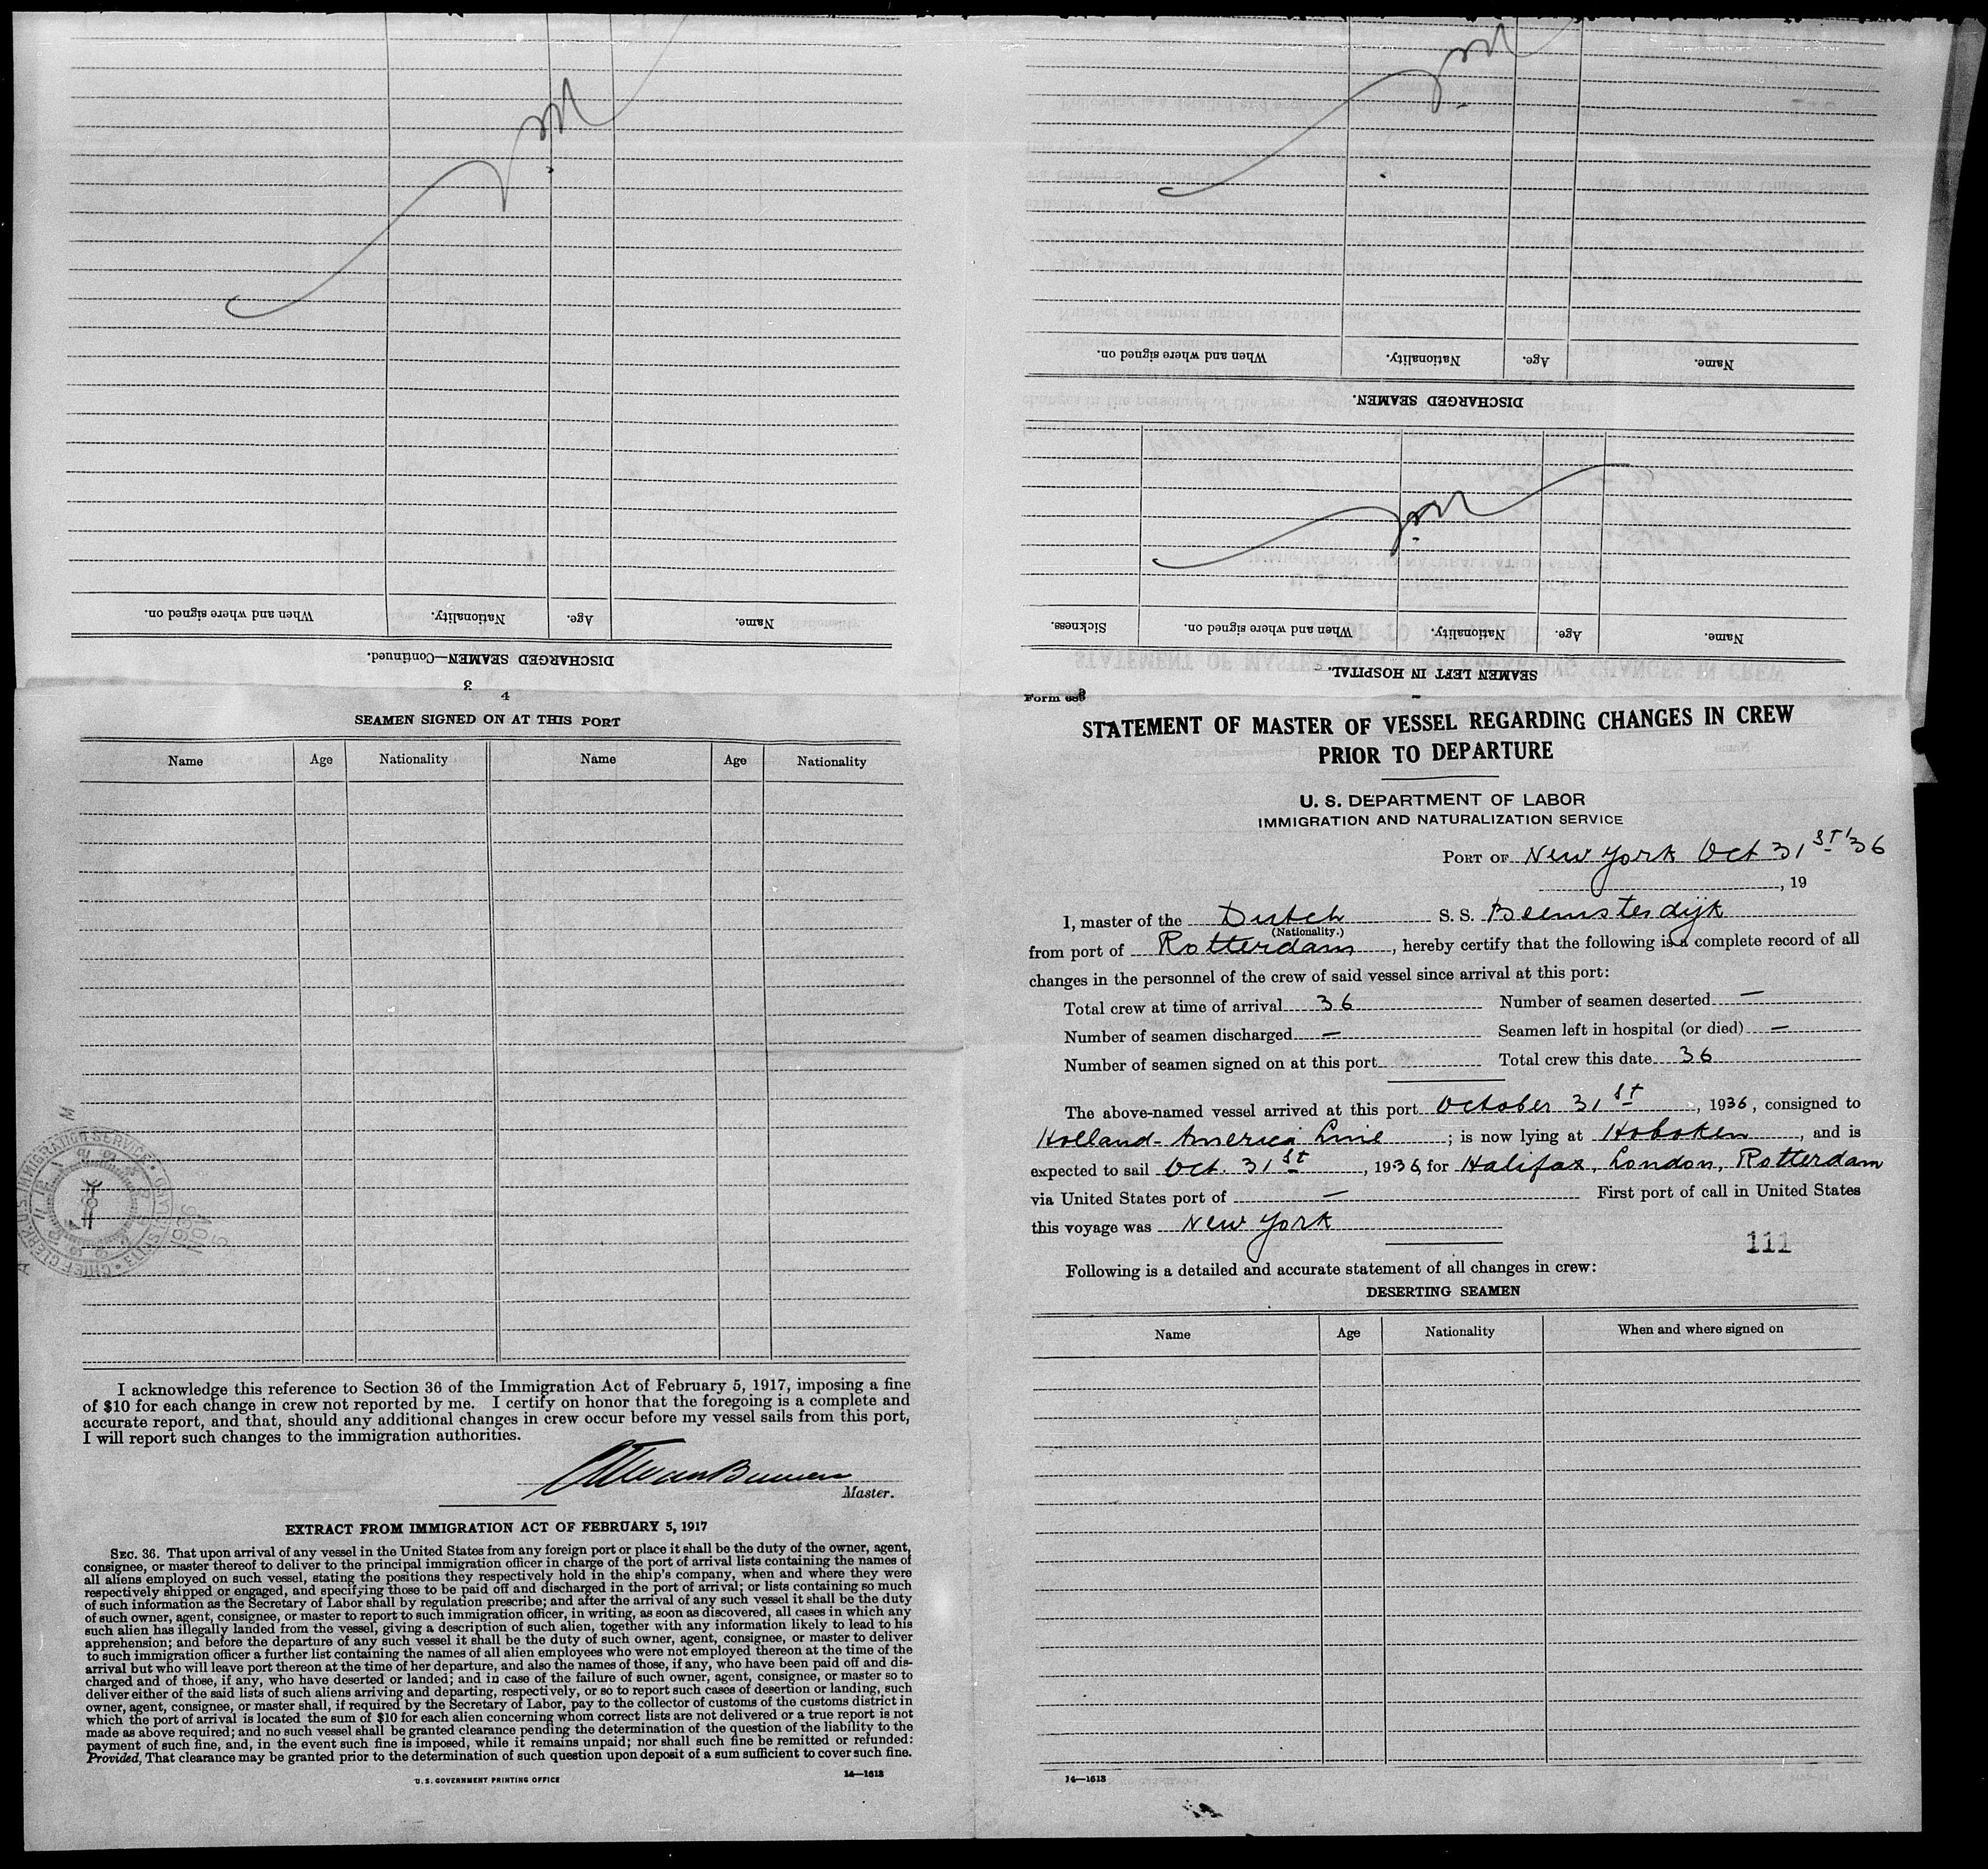 DISCHARGED SEAMEN—Continued.
Name. Age. Nationality. When and where signed on.
3
SEAMEN LEFT IN HOSPITAL.
Name. Age. Nationality. When and where signed on. Sickness.
DISCHARGED SEAMEN.
Name. Age. Nationality. When and where signed on.
4
SEAMEN SIGNED ON AT THIS PORT
Name Age Nationality Name Age Nationality
I acknowledge this reference to Section 36 of the Immigration Act of February 5, 1917, imposing a fine
of $10 for each change in crew not reported by me. I certify on honor that the foregoing is a complete and
accurate report, and that, should any additional changes in crew occur before my vessel sails from this port,
I will report such changes to the immigration authorities.
Master.
EXTRACT FROM IMMIGRATION ACT OF FEBRUARY 5, 1917
SEC. 36. That upon arrival of any vessel in the United States from any foreign port or place it shall be the duty of the owner, agent,
consignee, or master thereof to deliver to the principal immigration officer in charge of the port of arrival lists containing the names of
all aliens employed on such vessel, stating the positions they respectively hold in the ship's company, when and where they were
respectively shipped or engaged, and specifying those to be paid off and discharged in the port of arrival; or lists containing so much
of such information as the Secretary of Labor shall by regulation prescribe; and after the arrival of any such vessel it shall be the duty
of such owner, agent, consignee, or master to report to such immigration officer, in writing, as soon as discovered, all cases in which any
such alien has illegally landed from the vessel, giving a description of such alien, together with any information likely to lead to his
apprehension; and before the departure of any such vessel it shall be the duty of such owner, agent, consignee, or master to deliver
to such immigration officer a further list containing the names of all alien employees who were not employed thereon at the time of the
arrival but who will leave port thereon at the time of her departure, and also the names of those, if any, who have been paid off and dis-
charged and of those, if any, who have deserted or landed; and in case of the failure of such owner, agent, consignee, or master so to
deliver either of the said lists of such aliens arriving and departing, respectively, or so to report such cases of desertion or landing, such
owner, agent, consignee, or master shall, if required by the Secretary of Labor, pay to the collector of customs of the customs district in
which the port of arrival is located the sum of $10 for each alien concerning whom correct lists are not delivered or a true report is not
made as above required; and no such vessel shall be granted clearance pending the determination of the question of the liability to the
payment of such fine, and, in the event such fine is imposed, while it remains unpaid; nor shall such fine be remitted or refunded:
Provided, That clearance may be granted prior to the determination of such question upon deposit of a sum sufficient to cover such fine.
U. S. GOVERNMENT PRINTING OFFICE 14—1613
Form 689
STATEMENT OF MASTER OF VESSEL REGARDING CHANGES IN CREW
PRIOR TO DEPARTURE
U. S. DEPARTMENT OF LABOR
IMMIGRATION AND NATURALIZATION SERVICE
PORT OF New York Oct 31st '36
, 19
I, master of the Dutch S. S. Beemsterdijk
(Nationality.)
from port of Rotterdam, hereby certify that the following is a complete record of all
changes in the personnel of the crew of said vessel since arrival at this port:
Total crew at time of arrival 36 Number of seamen deserted —
Number of seamen discharged — Seamen left in hospital (or died) —
Number of seamen signed on at this port Total crew this date 36
The above-named vessel arrived at this port October 31st, 1936, consigned to
Holland-America Line; is now lying at Hoboken, and is
expected to sail Oct. 31st, 1936, for Halifax, London, Rotterdam
via United States port of — First port of call in United States
this voyage was New York
111
Following is a detailed and accurate statement of all changes in crew:
DESERTING SEAMEN
Name Age Nationality When and where signed on
14—1613